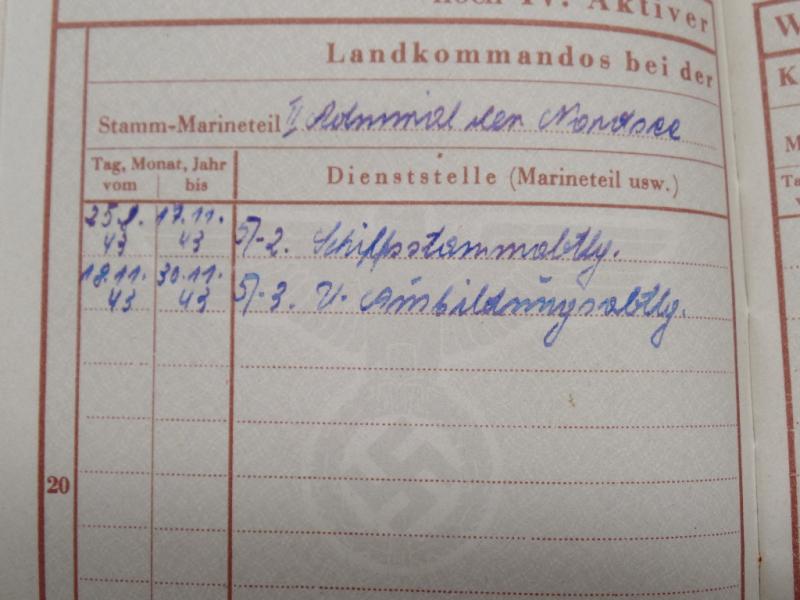 noch IV. Aktiver
Landkommandos bei der
Stamm-Marineteil II Admiral der Nordsee
Tag, Monat, Jahr
vom bis
Dienststelle (Marineteil usw.)
17.11.
43 43
2. Schiffsstammabtlg.
18.11. 30.11.
43 43
3. U. Ausbildungsabtlg.
20
W
K
M
Ta